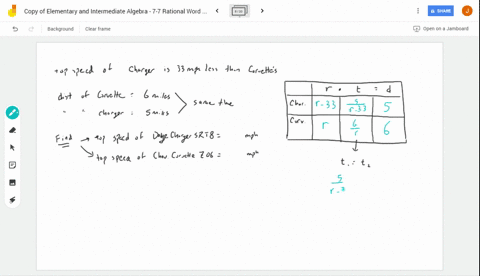 Copy of Elementary and Intermediate Algebra - 7-7 Rational Word ...
SHARE
Background
Clear frame
Open on a Jamboard
top speed of Charger is 33 mph less than Corvette's
dist of Corvette = 6 miles
" " charger = 5 miles
> same time
Find → top speed of Dodge Charger SRT8 = mph
→ top speed of Chev Corvette Z06 = mph
r · t = d
Char. r-33 5/r-33 5
Corv r 6/r 6
t₁ = t₂
5
r-3